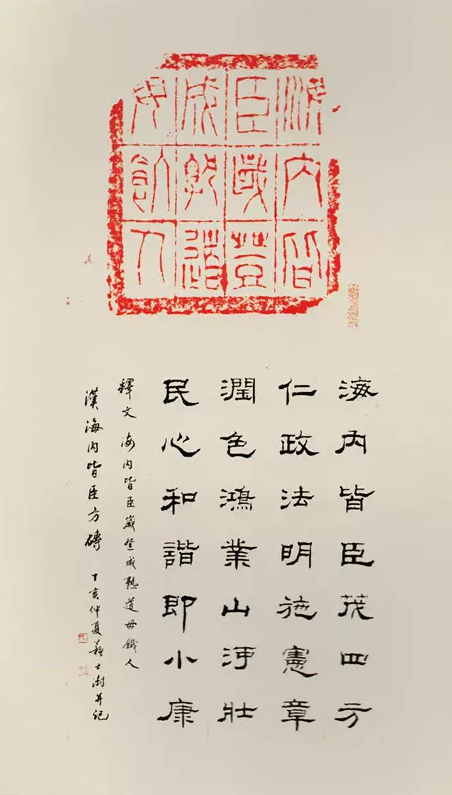 海内皆
臣歲登
成熟道
毋飢人
海內皆臣茂四方
仁政法明施憲章
潤色鴻業山河壯
民心和諧即小康
釋文 海内皆臣歲登成熟道毋饑人
漢海内皆臣方磚 丁亥仲夏蘇士澍并記